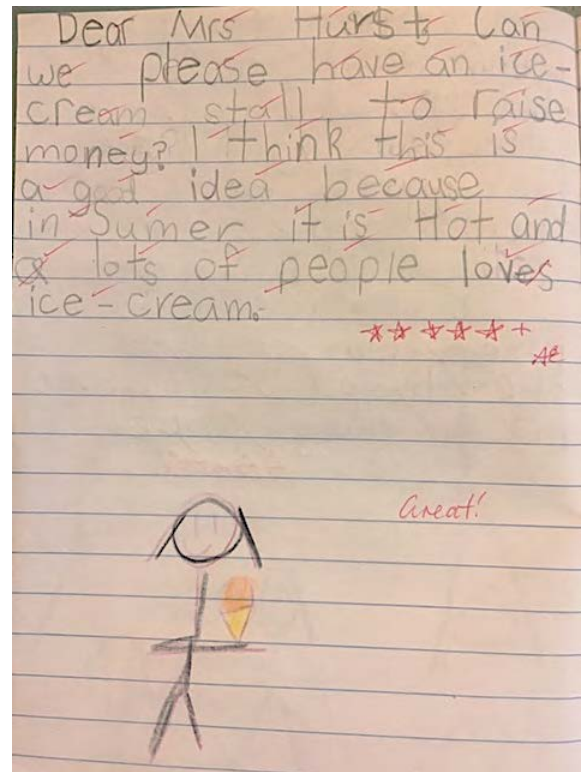 Dear Mrs Hurst Can
we please have an ice-
cream stall to raise
money? I think this is
a good idea because
in Sumer it is Hot and
lots of people loves
ice-cream.
Great!